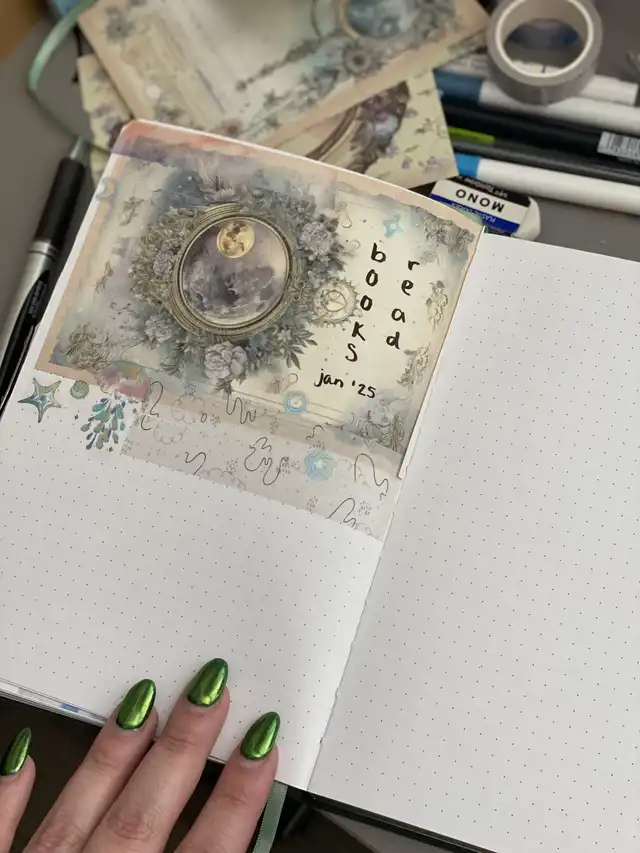 books
read
jan '25
MONO